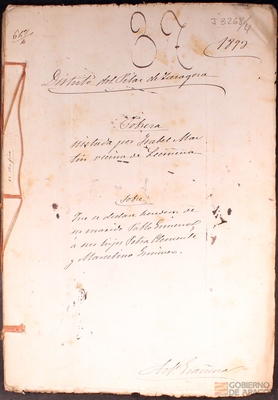 37
J 3268/4
1899
Distrito del Pilar de Zaragoza
Pobreza
instada por Isabel Mar-
tin vecina de Leciñena
Sobre
Que se declaren herederos de
su marido Pablo Gimenez
a sus hijos Petra Clemente
y Marcelino Gimenez
GOBIERNO
DE ARAGON